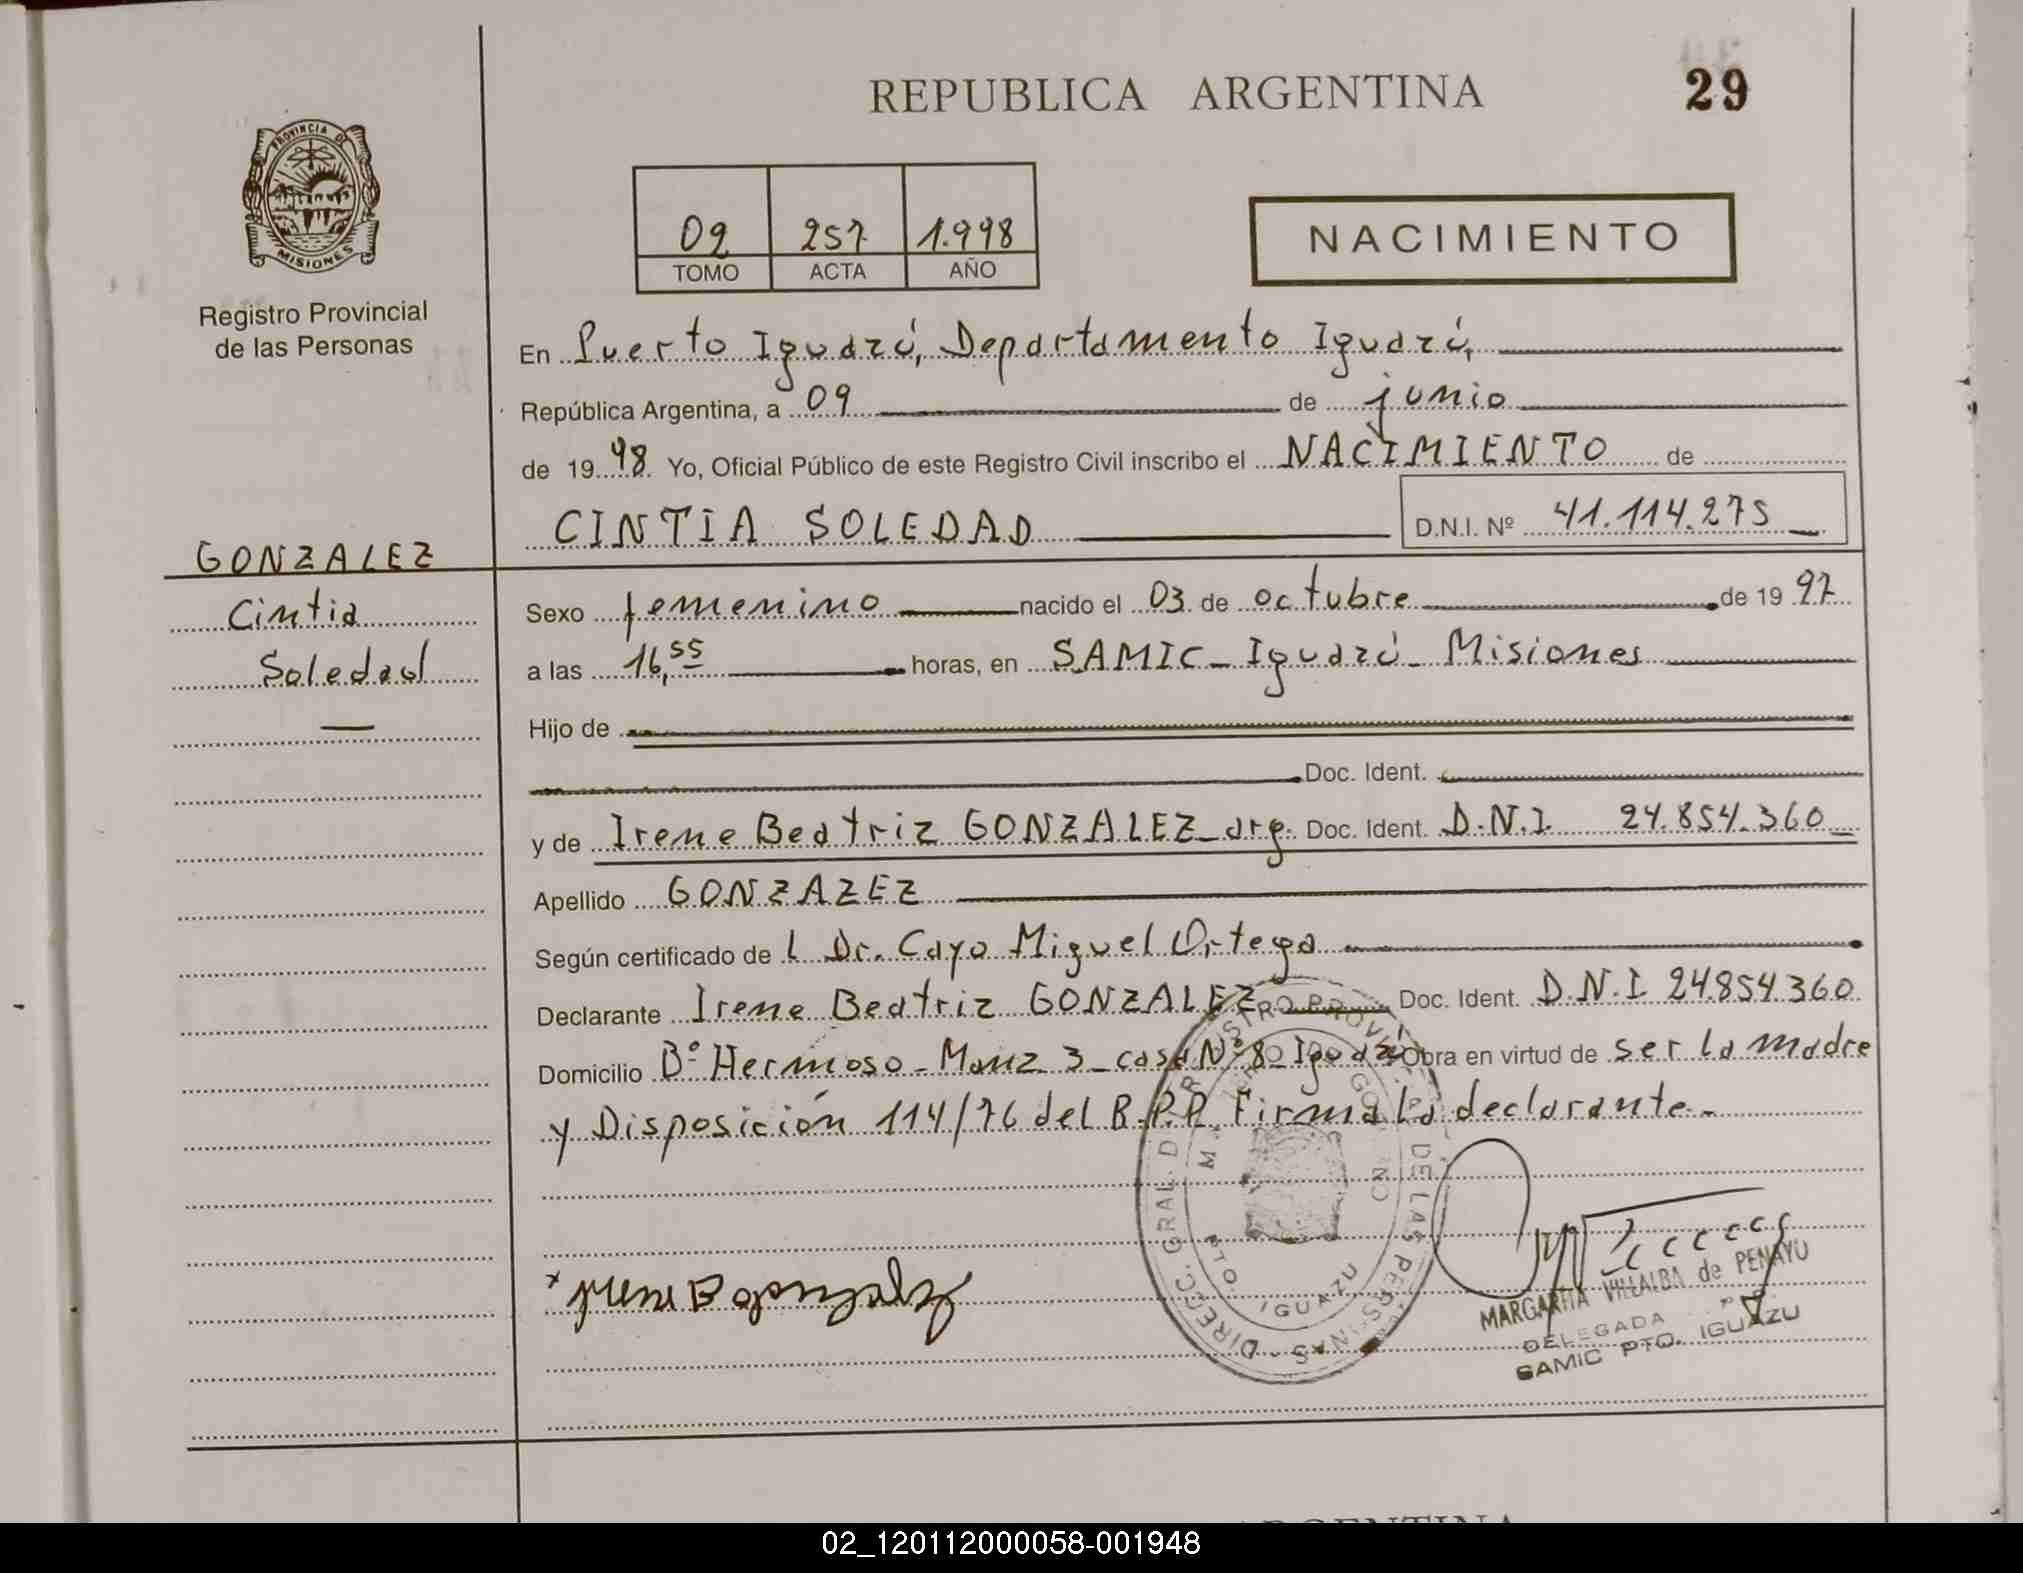 REPUBLICA ARGENTINA
29
PROVINCIA DE
MISIONES
Registro Provincial
de las Personas
02 257 1.998
TOMO ACTA AÑO
NACIMIENTO
En Puerto Iguazú, Departamento Iguazú,
República Argentina, a 09 de junio
de 1998 Yo, Oficial Público de este Registro Civil inscribo el NACIMIENTO de
CINTIA SOLEDAD D.N.I. Nº 41.114.275
GONZALEZ
Cintia
Soledad
Sexo femenino nacido el 03 de octubre de 1997
a las 16,55 horas, en SAMIC - Iguazú - Misiones
Hijo de
Doc. Ident.
y de Irene Beatriz GONZALEZ - arg. Doc. Ident. D.N.I. 24.854.360
Apellido GONZAZEZ
Según certificado de l Dr. Cayo Miguel Ortega
Declarante Irene Beatriz GONZALEZ Doc. Ident. D.N.I. 24.854.360
Domicilio Bº Hermoso - Manz 3 - casa Nº 8 - Iguazú Obra en virtud de ser la madre
y Disposición 114/76 del R.P.P. Firma la declarante.-
DIRECC. GRAL. DE LAS PERSONAS
PTO. IGUAZU
x Irene B gonzalez
MARGARITA VILLALBA de PENAYO
DELEGADA
SAMIC PTO. IGUAZU
ARGENTINA
02_120112000058-001948